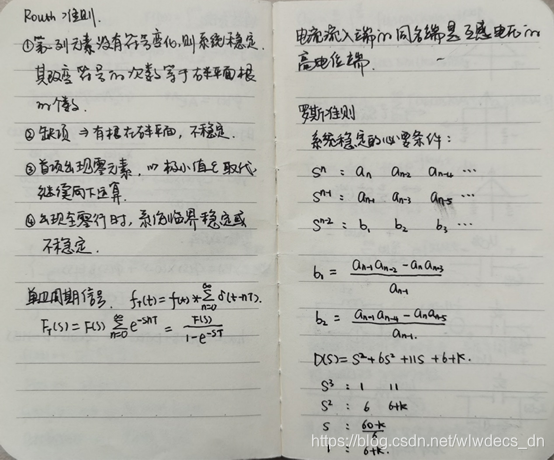 Routh 准则.
①第一列元素没有符号变化,则系统稳定.
其改变符号的次数等于右半平面根
的个数.
②缺项 ⇒ 有根在右半平面,不稳定.
③首项出现零元素,以极小值ε取代
继续向下运算.
④出现全零行时,系统临界稳定或
不稳定.
单边周期信号. f_T(t) = f(t) * ∑_{n=0}^{∞} δ(t-nT).
F_T(s) = F(s) ∑_{n=0}^{∞} e^{-snT} = F(s) / (1-e^{-sT})
电流流入端的同名端是互感电压的
高电位端.
罗斯准则
系统稳定的必要条件:
S^n : a_n a_{n-2} a_{n-4} ...
S^{n-1} : a_{n-1} a_{n-3} a_{n-5} ...
S^{n-2} : b_1 b_2 b_3 ...
b_1 = (a_{n-1}a_{n-2} - a_n a_{n-3}) / a_{n-1}
b_2 = (a_{n-1}a_{n-4} - a_n a_{n-5}) / a_{n-1}.
D(s) = S^2 + 6S^2 + 11S + 6+K.
S^3 : 1 11
S^2 : 6 6+K
S : 60-K / 6
1 : 6+K.
https://blog.csdn.net/wlwdecs_dn